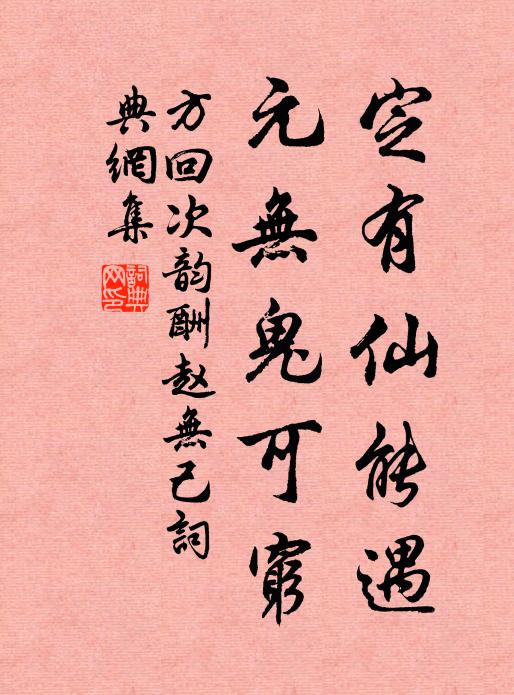 定有仙能遇
元無鬼可窮
方回次韵酬赵無己詞
典網集
詞典网印